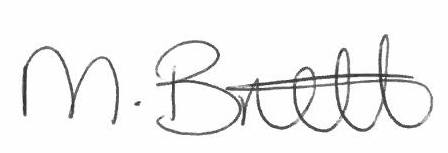 M. Brett